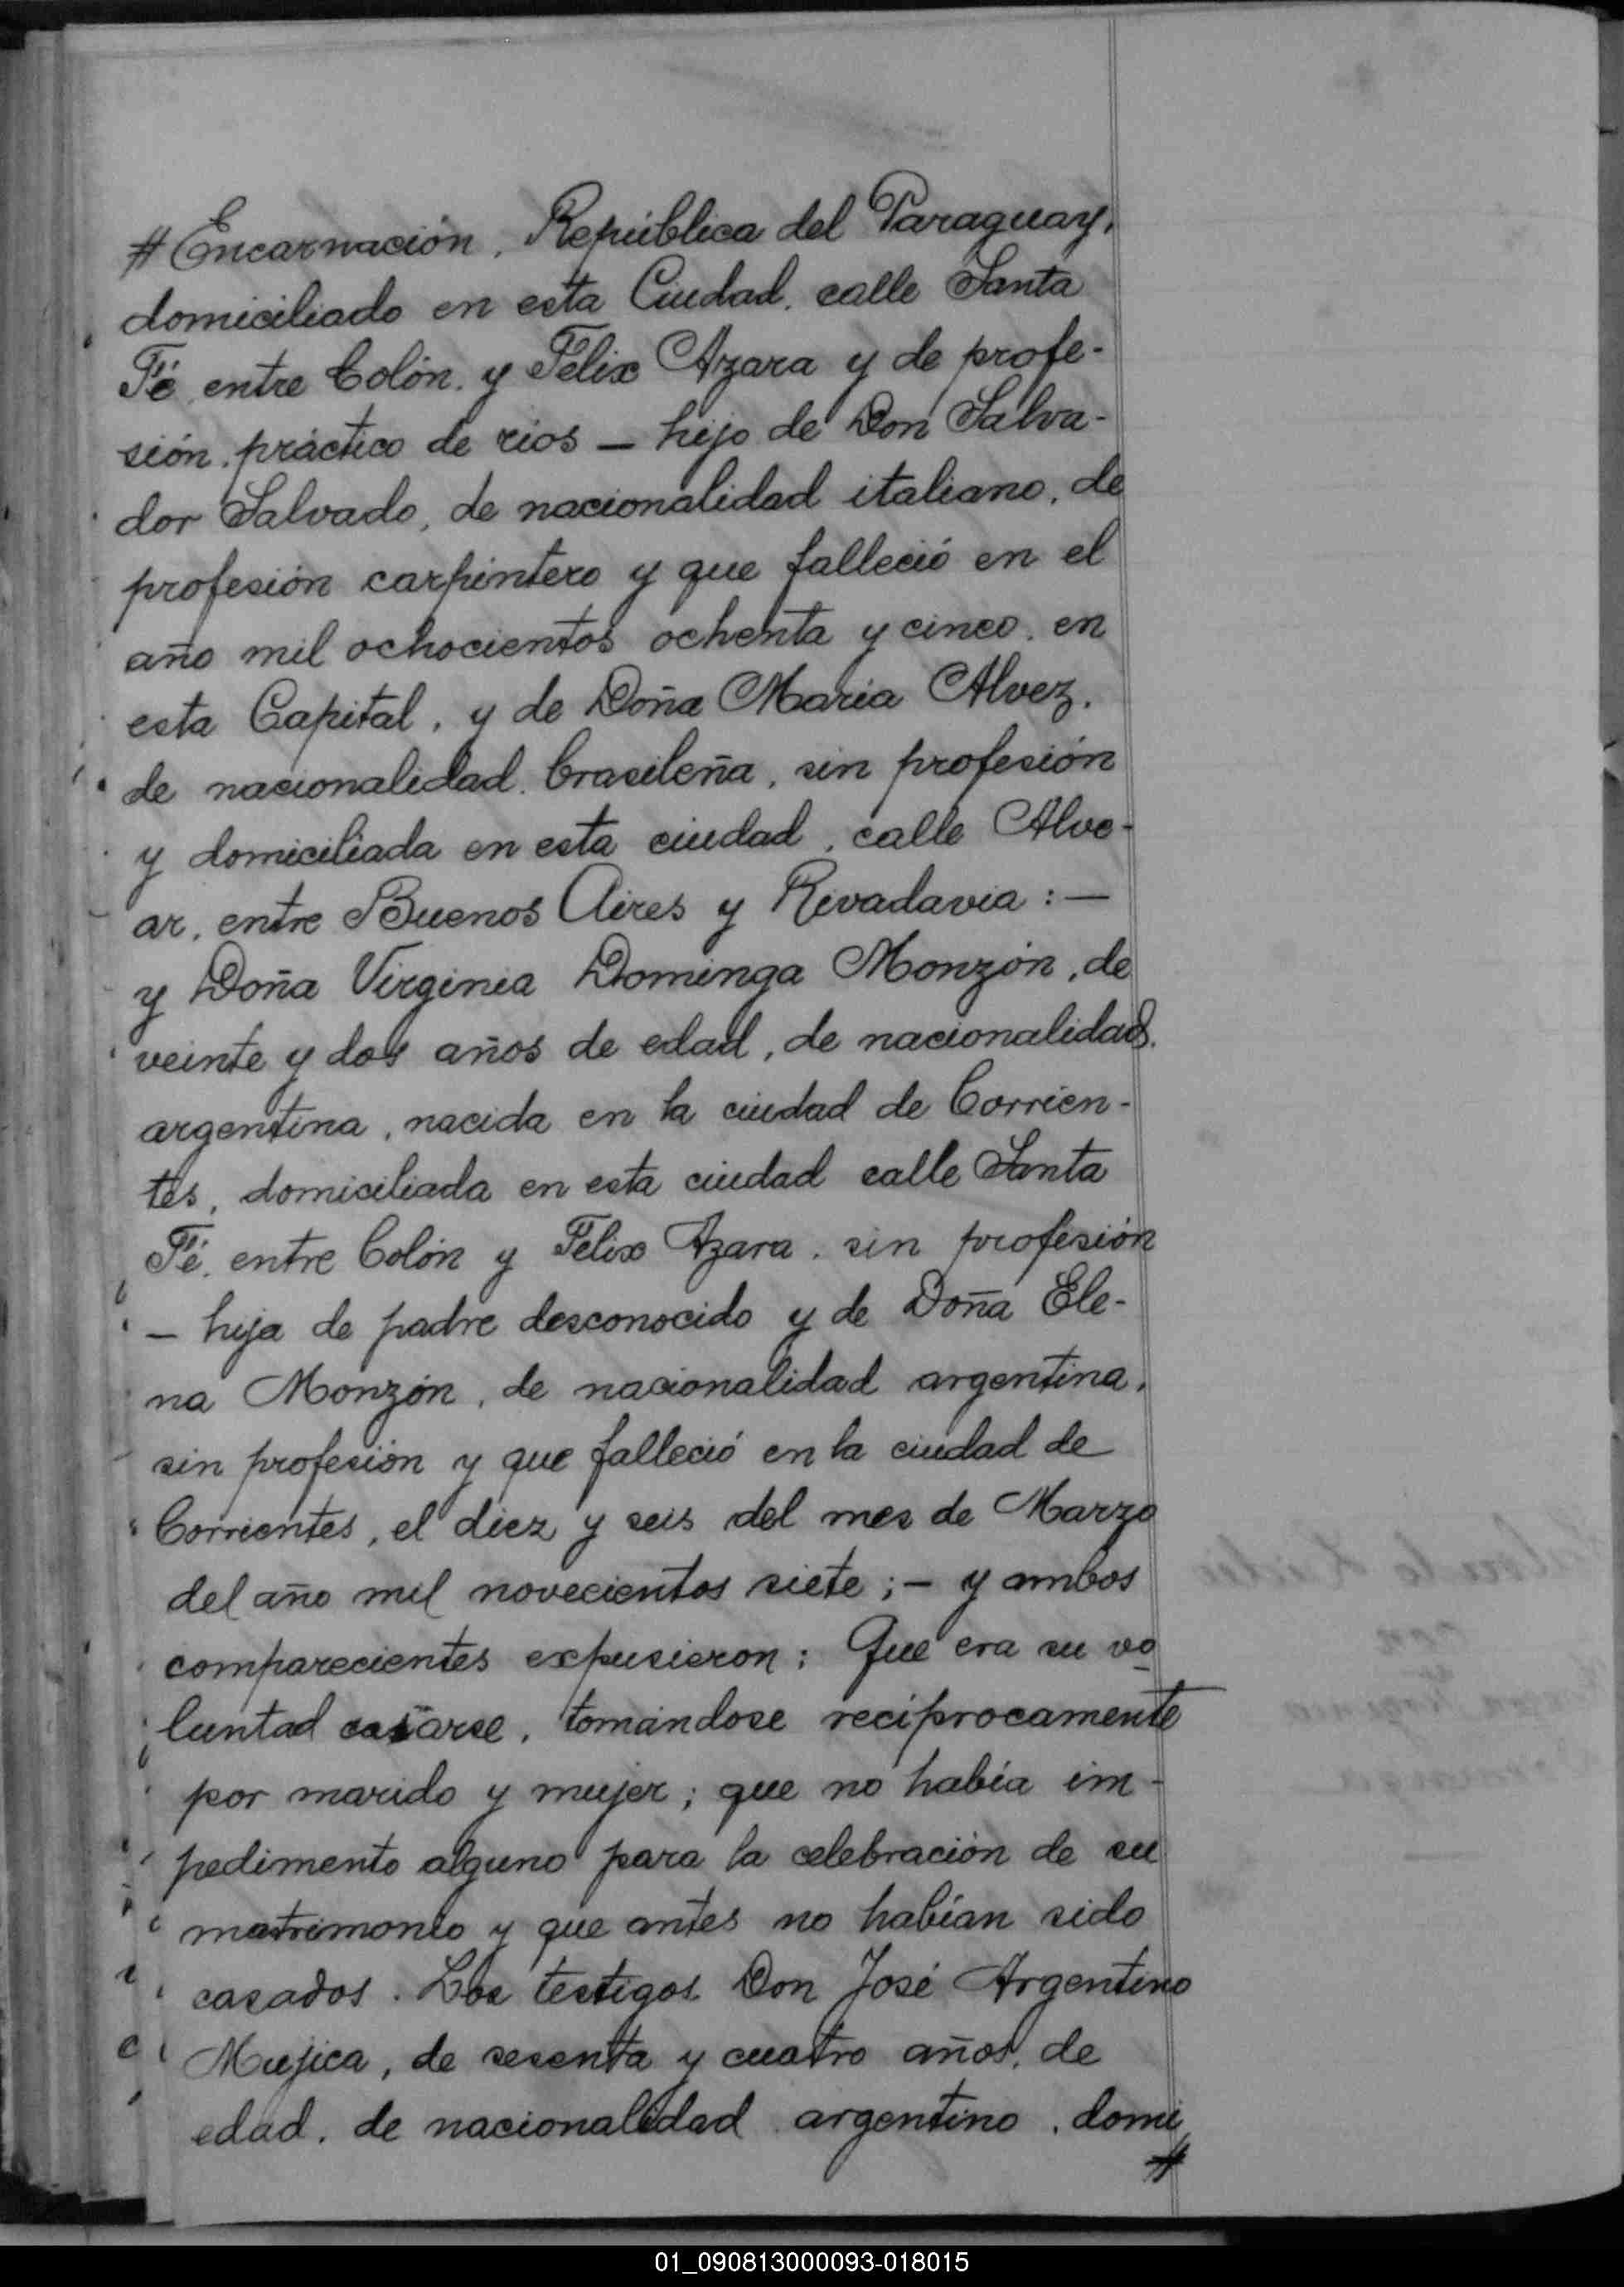 # Encarnación, República del Paraguay,
domiciliado en esta Ciudad, calle Santa
Fé, entre Colón, y Félix Azara y de profe-
sión, práctico de rios — hijo de Don Salva-
dor Salvado, de nacionalidad italiano, de
profesión carpintero y que falleció en el
año mil ochocientos ochenta y cinco, en
esta Capital, y de Doña Maria Alvez,
de nacionalidad brasileña, sin profesión
y domiciliada en esta ciudad, calle Alve-
ar, entre Buenos Aires y Rivadavia : —
y Doña Virginia Dominga Monzón, de
veinte y dos años de edad, de nacionalidad
argentina, nacida en la ciudad de Corrien-
tes, domiciliada en esta ciudad calle Santa
Fé, entre Colón y Felix Azara, sin profesión
— hija de padre desconocido y de Doña Ele-
na Monzón, de nacionalidad argentina,
sin profesión y que falleció en la ciudad de
Corrientes, el diez y seis del mes de Marzo
del año mil novecientos siete ; — y ambos
comparecientes expusieron : Que era su vo
luntad casarse, tomándose recíprocamente
por marido y mujer ; que no había im-
pedimento alguno para la celebración de su
matrimonio y que antes no habían sido
casados. Los testigos Don José Argentino
Mujica, de sesenta y cuatro años, de
edad, de nacionalidad argentino, domi
#
01_090813000093-018015